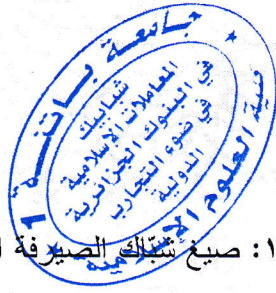 جامعة باتنة 1
كلية العلوم الإسلامية
شبابيك
المعاملات الإسلامية
في البنوك الجزائرية
في ضوء التجارب
الدولية
1: صيغ شبّاك الصيرفة ا